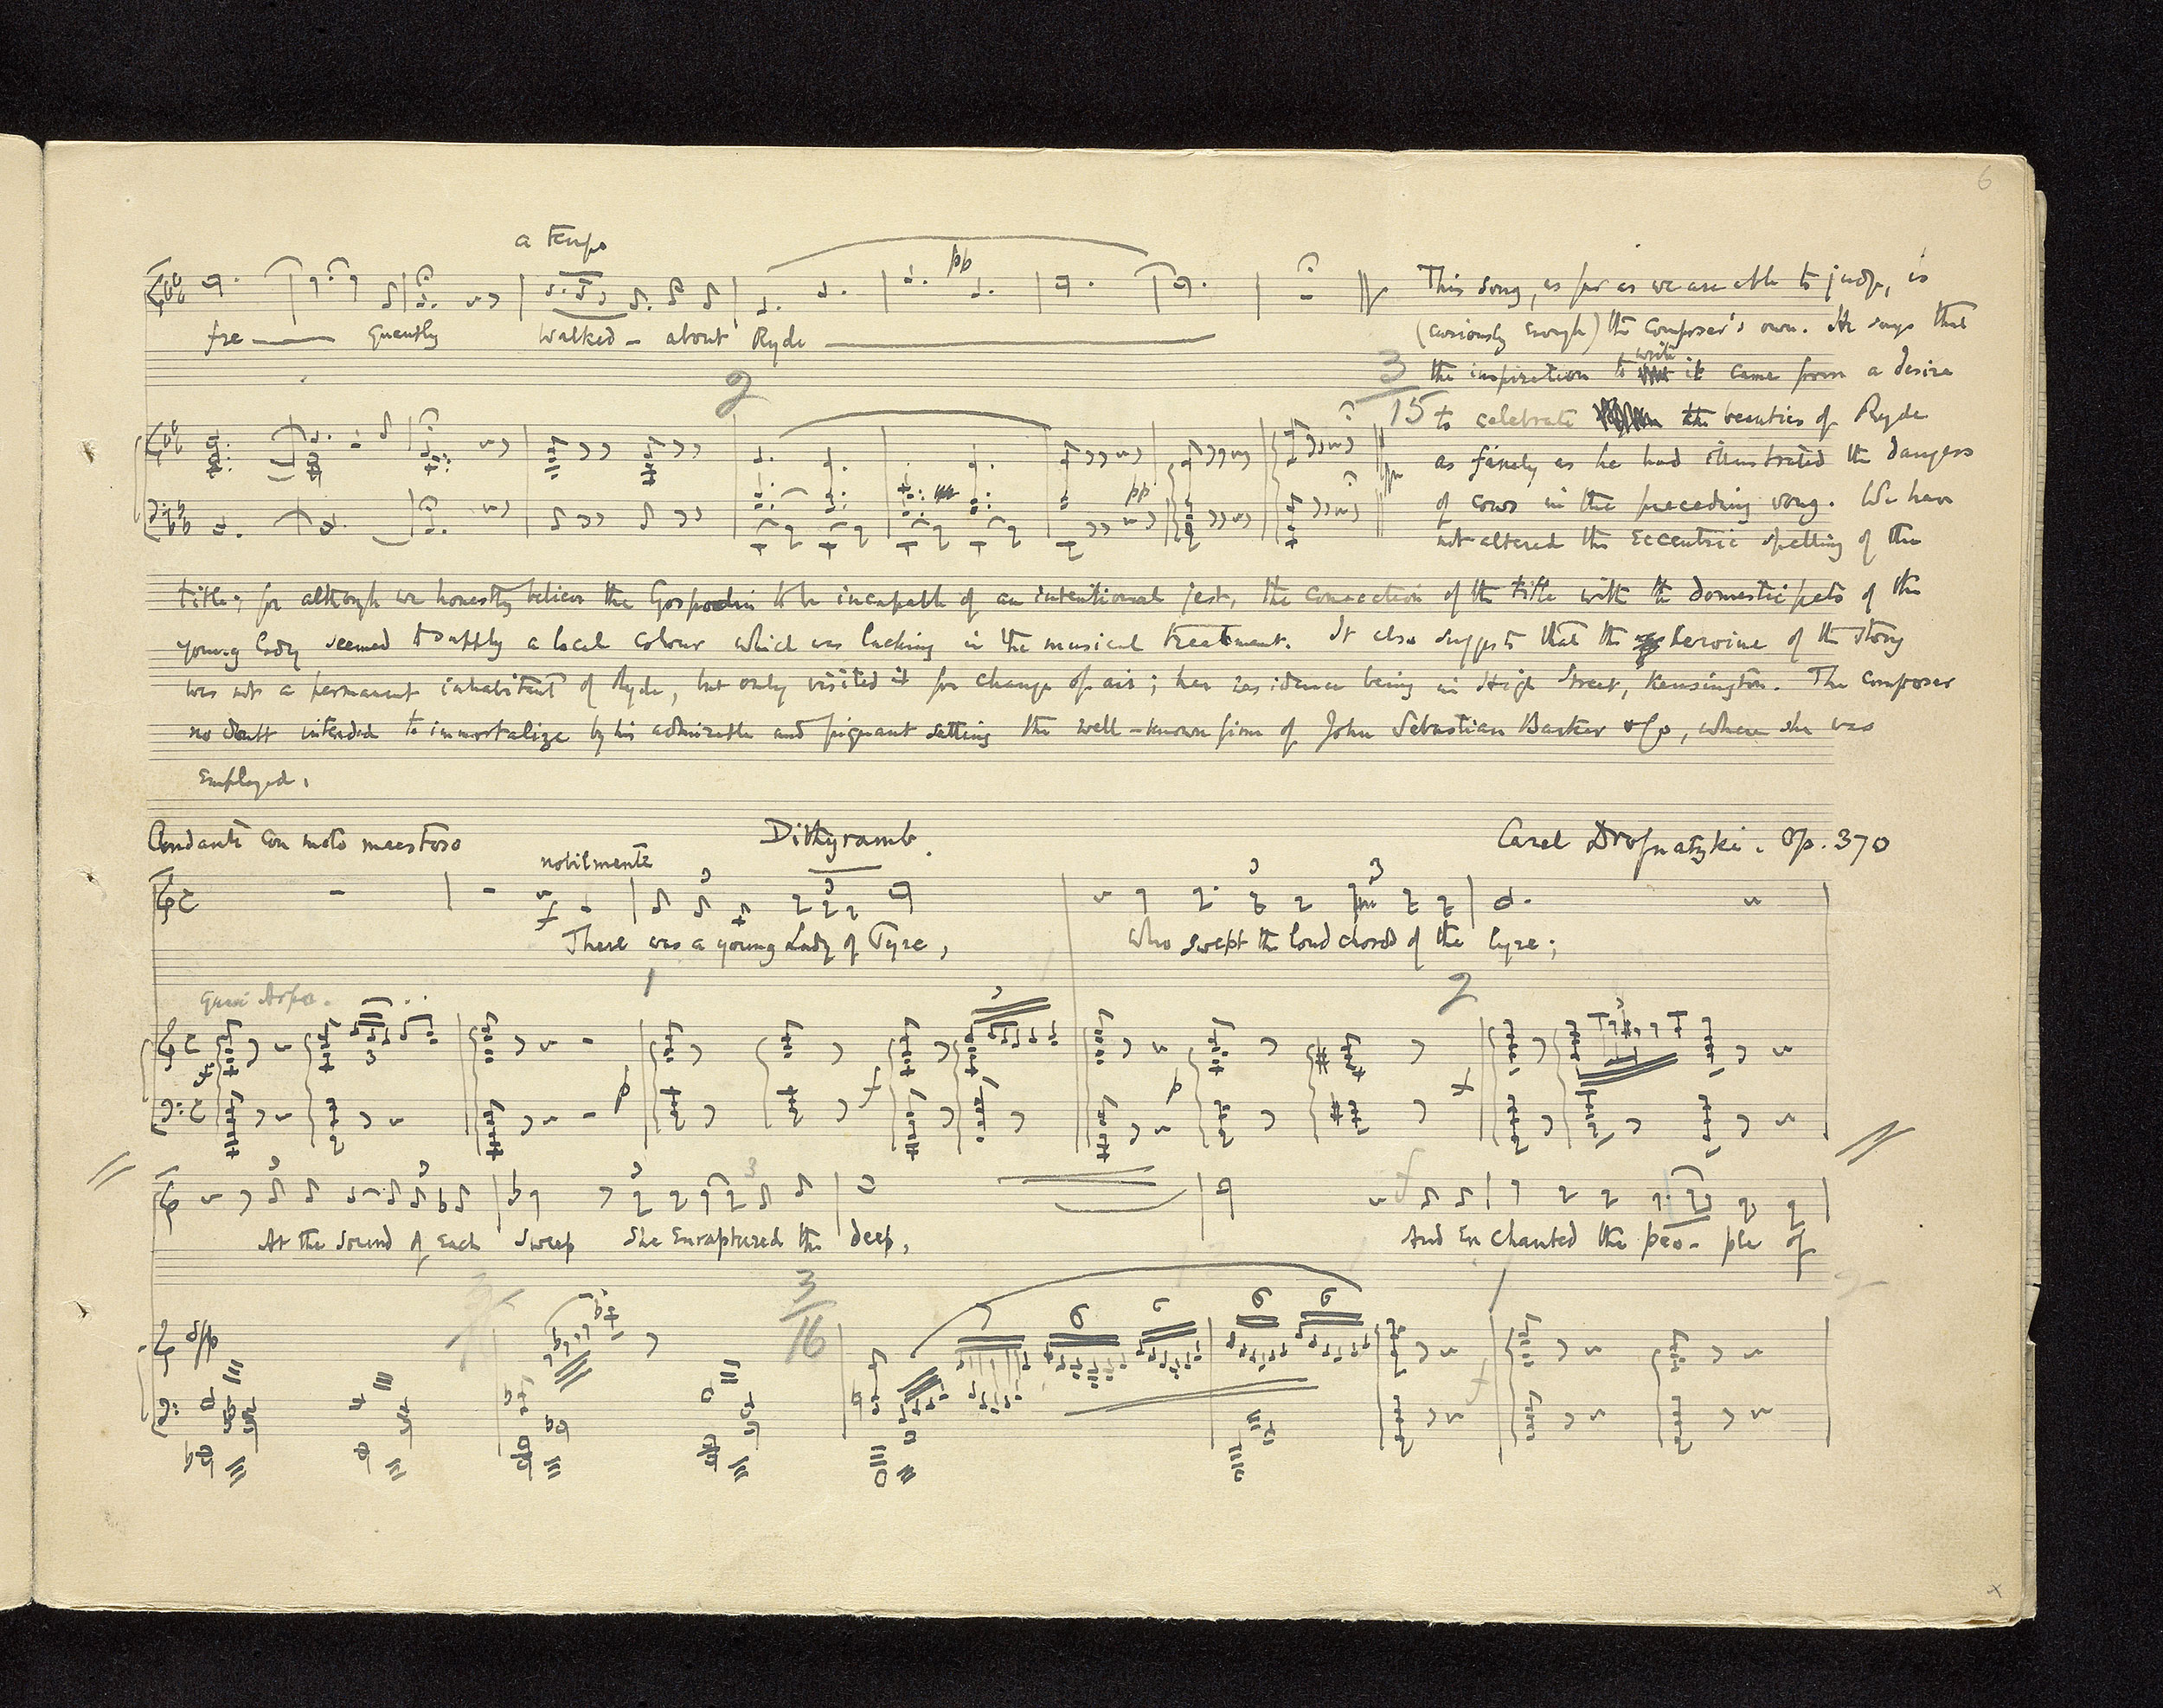 6
a tempo
pp
This song, as far as we are able to judge, is
fre — quently walked - about Ryde
(curiously enough) the composer's own. He says that
2
3
the inspiration to write it came from a desire
15
to celebrate the beauties of Ryde
as finely as he had illustrated the dangers
pp
of cows in the preceding song. We have
not altered the eccentric spelling of the
title; for although we honestly believe the Gospodin to be incapable of an intentional jest, the connection of the title with the domestic pets of the
young lady seemed to supply a local colour which was lacking in the musical treatment. It also suggests that the heroine of the story
was not a permanent inhabitant of Ryde, but only visited it for change of air; her residence being in High Street, Kensington. The composer
no doubt intended to immortalize by his admirable and piquant setting the well-known firm of John Sebastian Barker & Co, where she was
employed.
Andante con moto maestoso
Dithyramb.
Carel Drofnatzki. Op. 370
nobilmente
3 3 3 3
f
There was a young Lady of Tyre,
Who swept the loud chords of the lyre;
1
2
quasi Arpa.
3
3
3
sf
p
f
p
f
3 3 3 3
f
At the sound of each sweep She enraptured the deep,
And en chanted the peo- ple of
3
16
1
7 6 6 6 6
f
x